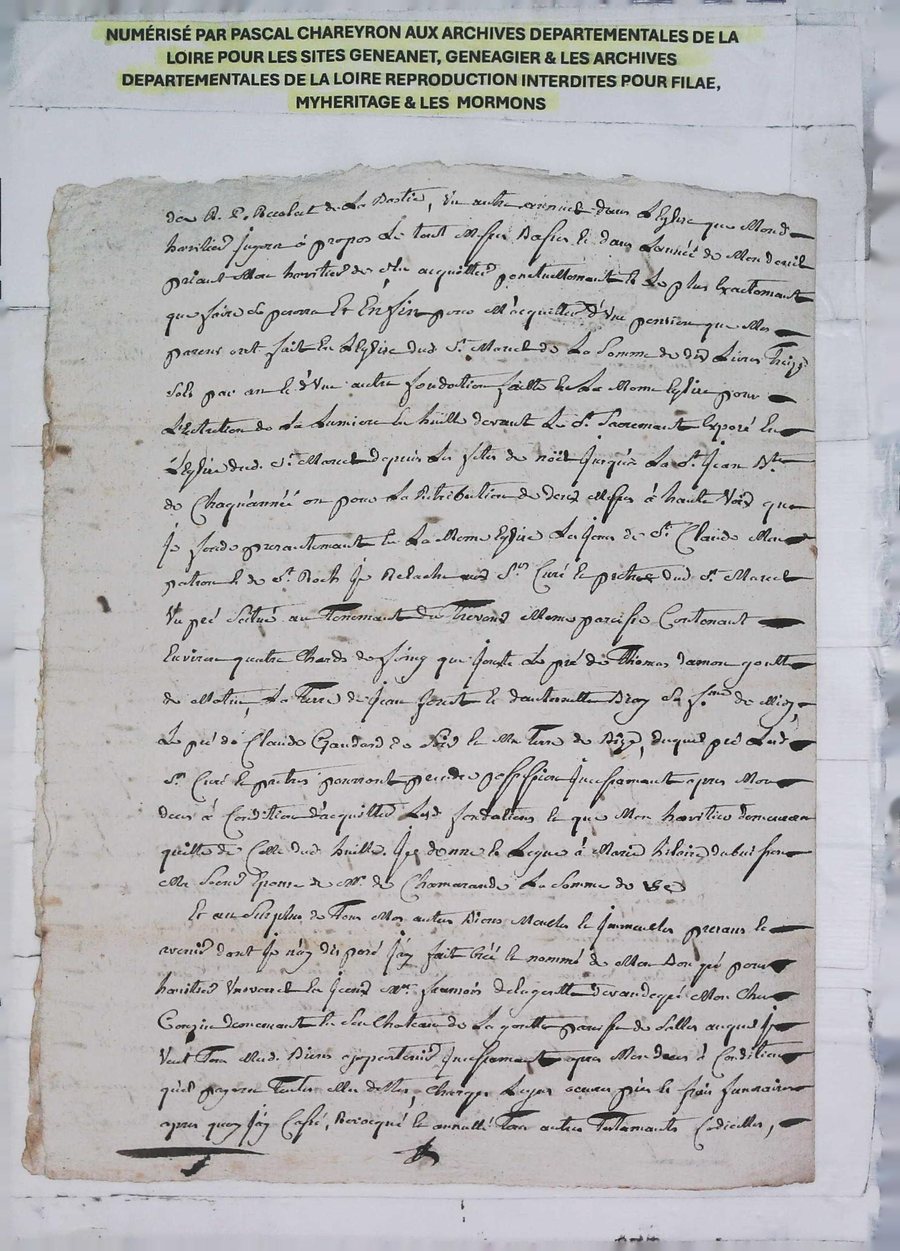 NUMÉRISÉ PAR PASCAL CHAREYRON AUX ARCHIVES DEPARTEMENTALES DE LA
LOIRE POUR LES SITES GENEANET, GENEAGIER & LES ARCHIVES
DEPARTEMENTALES DE LA LOIRE REPRODUCTION INTERDITES POUR FILAE,
MYHERITAGE & LES MORMONS
des R. P. Recolet de La Bastie, Un autre dans L'Eglise que Mond
heritier jugera à propos Le tout Messes Basses et dans L'année de Mon deceds
priant Mon heritier de s'en acquitter ponctuellement et Le plus Exactement
que faire se pourra Et Enfin pour M'acquitter d'Une pension que Mes
parens ont fait En L'Eglise dud. St. Marcel de La Somme de dix Livres Treize
sols par an et d'Une autre fondation faitte En La Meme Eglise pour
L'Entretien de La Lumiere En huille devant Le St. Sacremant Exposé En
L'Eglise dud. St. Marcel depuis Les festes de noël jusqu'à La St. Jean Bte
de Chaqu'année ou pour La Retribution de deux Messes à haute Voix que
Je fonde presantemant En La Meme Eglise Les jours de St. Claude Mon
patron et de St. Roch Je Relache aux Srs Curé et pretres dud. St. Marcel
Un pré Scitué au Tenemant du Meme paroisse Contenant
Environ quatre Chards de foing que jouste Le pré de Thomas damon goutte
de Matin, La Terre de Jean et d'antoinette Broy Sa fme de Midy,
Le pré de Claude Gaudard de Soir et Ma Terre de Bize, duquel pré Lesd
Sr. Curé et pretres pourront prendre possession Incessamant apres Mon
deces à Condition d'acquitter Lesd. fondations et que Mon heritier demeurera
quitte de Celle dud. huille. Je donne et Legue à Marie hilaire dubuisson
Ma Seconde Epouse de Mr. de Chamarande La Somme de
Et au Surplus de Tous Mes autres Biens Meubles et Immeubles presans et
avenir dont Je n'ay disposé J'ay fait Créé et nommé de Mon Bon gré pour
heritier Universel En Mre. françois delagoutte Mon Cher
Cousin demeurant En Son Chateau de La goutte paroisse de Salles auquel je
Veut Tous Mesd. Biens appartenir Incessamant apres Mon deces à Condition
qu'il payera Toutes Mes dettes, Charges Legas œuvres pies et frais funeraires
apres quoy J'ay Cassé, Revocqué et annullé Tous autres Testamants Codicilles,